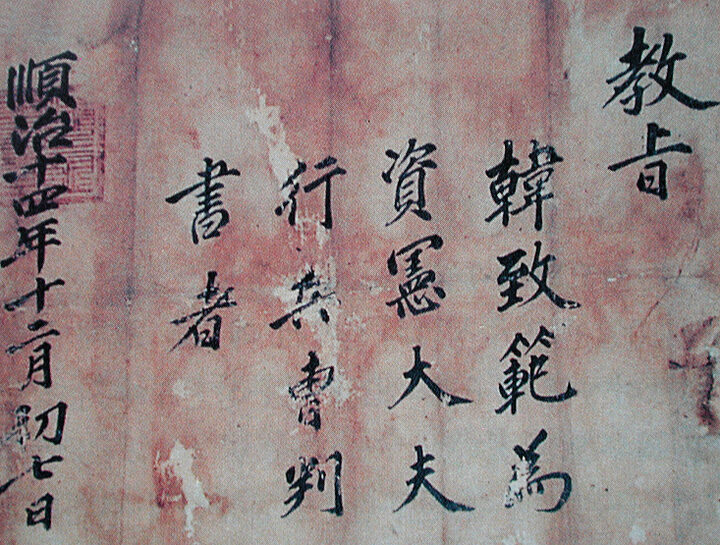 教旨
韓致範為
資憲大夫
行兵曺判
書者
順治十四年十二月初七日